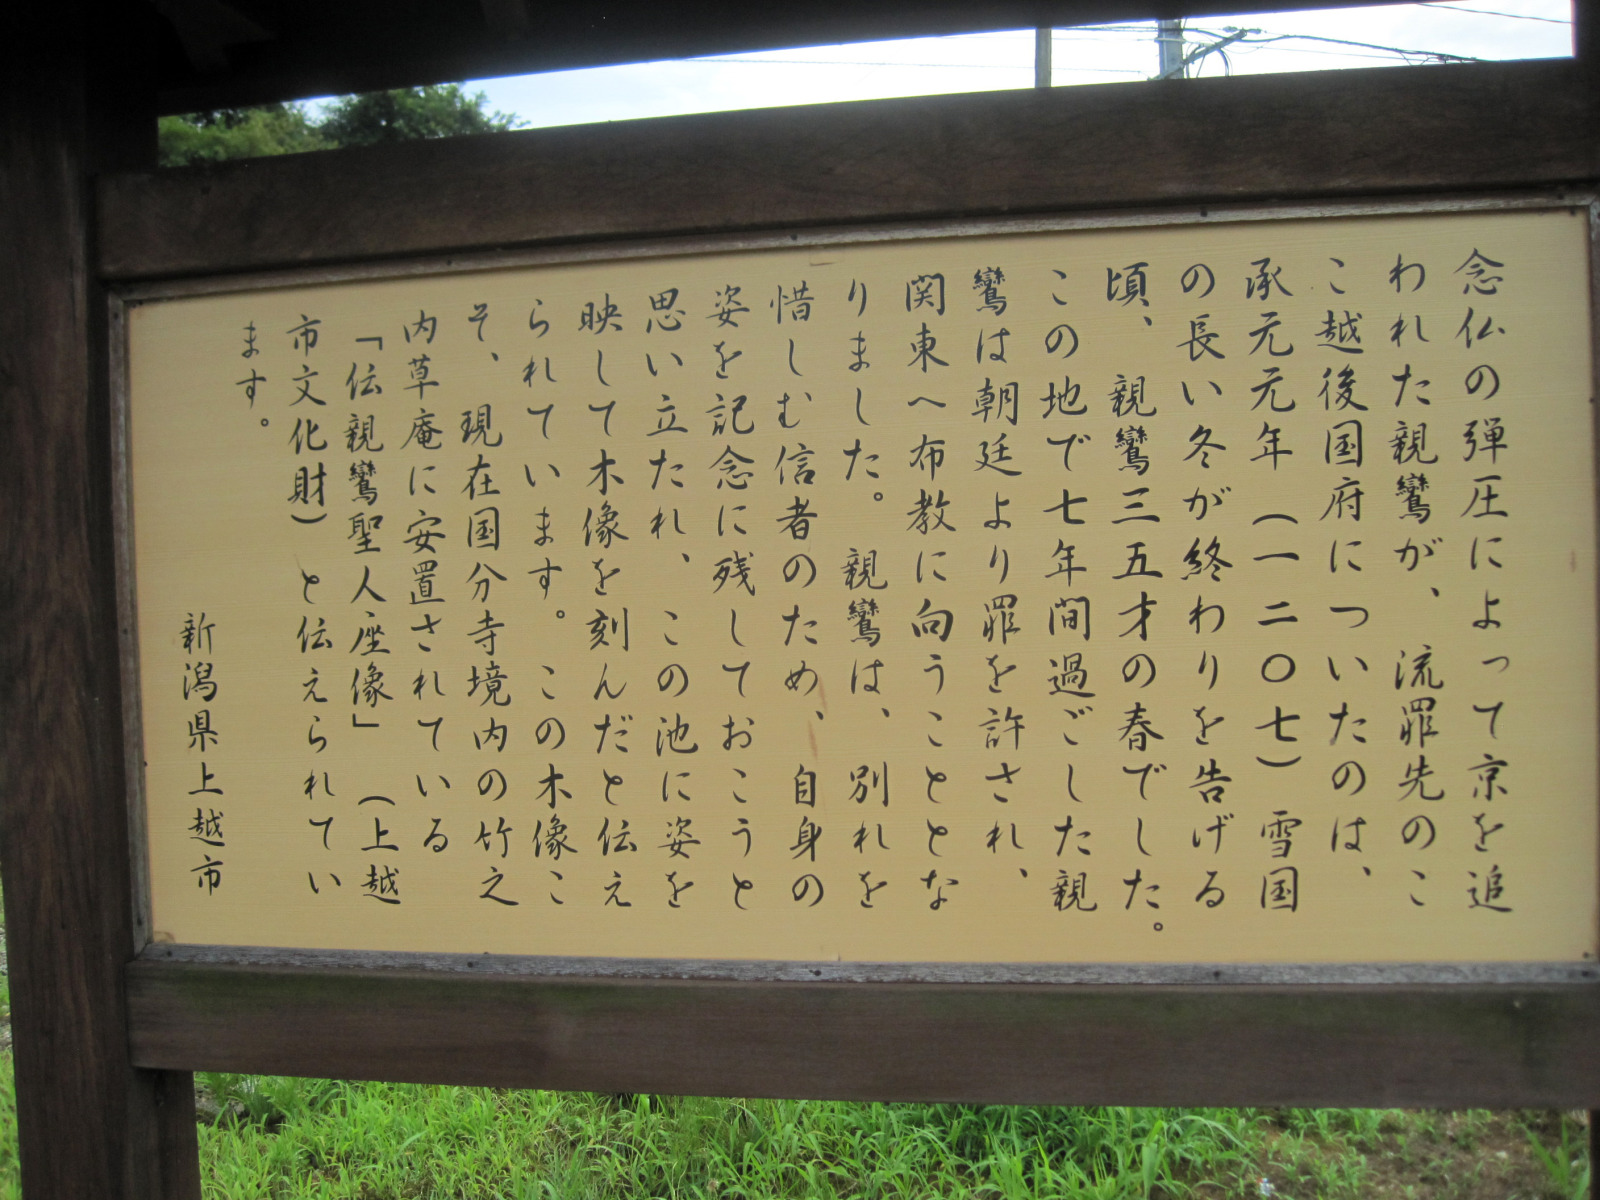 念仏の弾圧によって京を追
われた親鸞が、流罪先のこ
こ越後国府についたのは、
承元元年(一二〇七)雪国
の長い冬が終わりを告げる
頃、親鸞三五才の春でした。
この地で七年間過ごした親
鸞は朝廷より罪を許され、
関東へ布教に向うこととな
りました。親鸞は、別れを
惜しむ信者のため、自身の
姿を記念に残しておこうと
思い立たれ、この池に姿を
映して木像を刻んだと伝え
られています。この木像こ
そ、現在国分寺境内の竹之
内草庵に安置されている
「伝親鸞聖人座像」(上越
市文化財)と伝えられてい
ます。
新潟県上越市